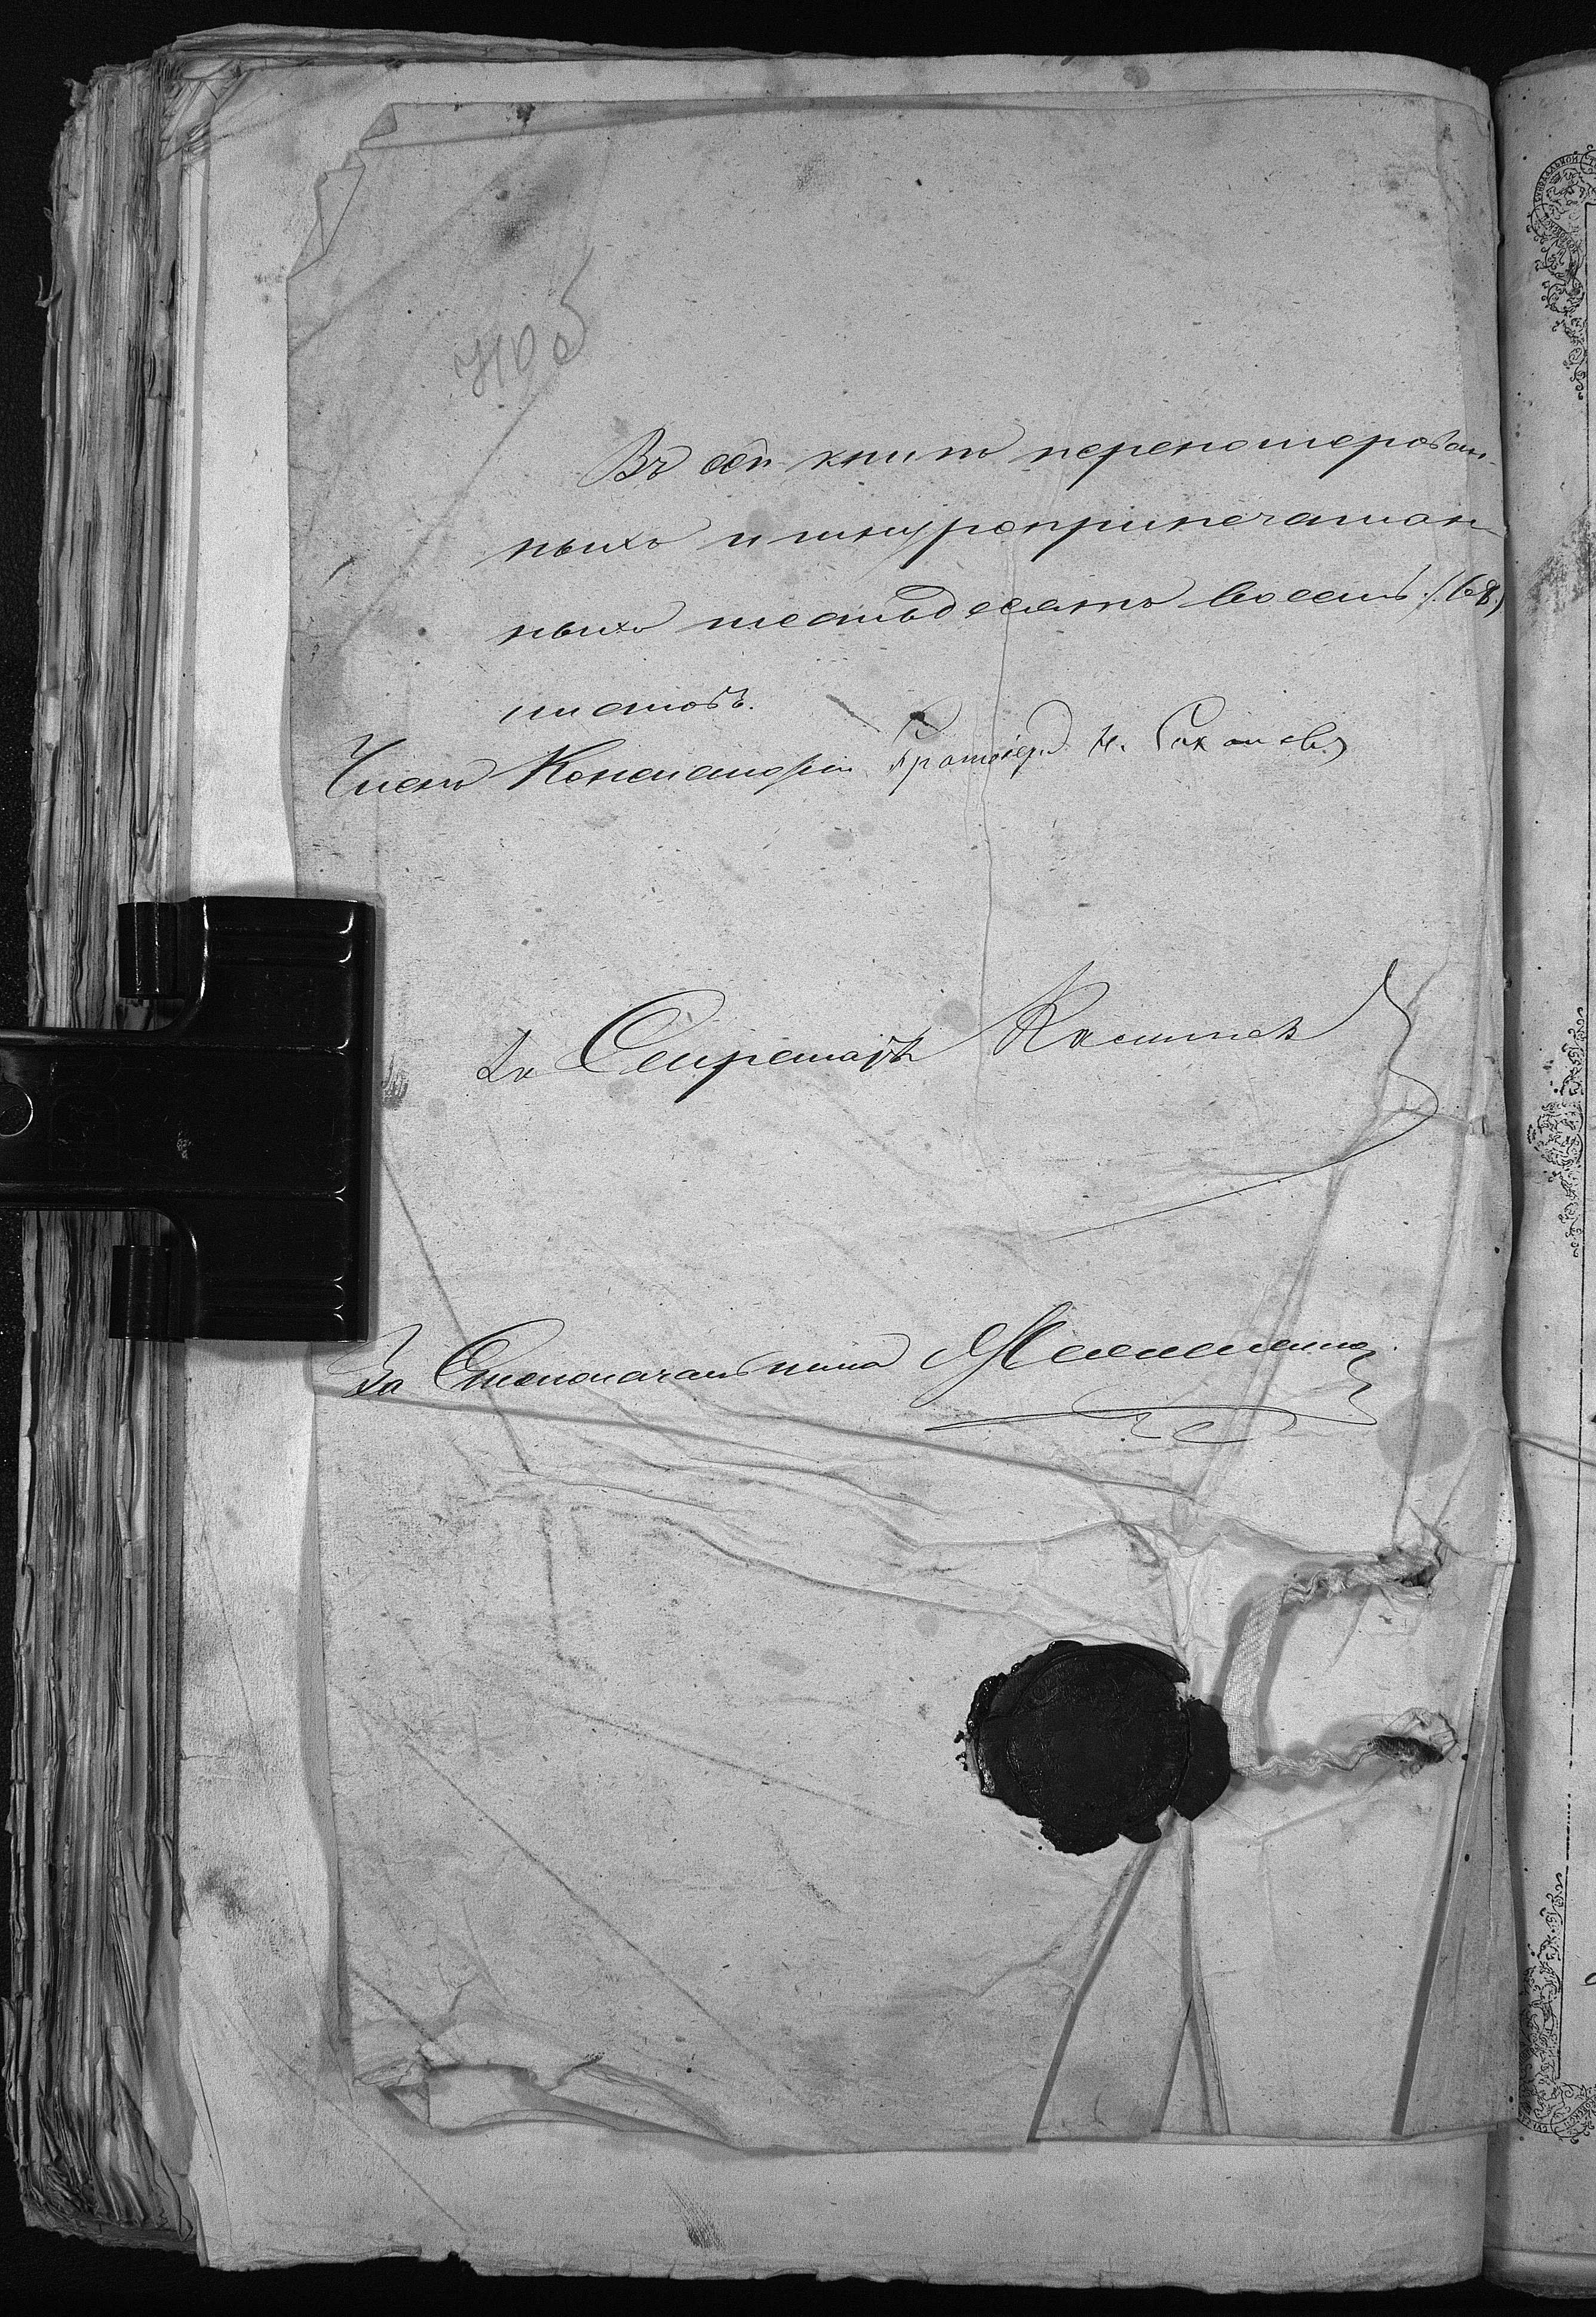 Въ сей книгѣ перенумерован-
ныхъ и шнуроприпечатан-
ныхъ шестьдесятъ восемь /68./
листовъ.
Членъ Консисторіи Протоіерей Н.
За Секретаря
За Столоначальника